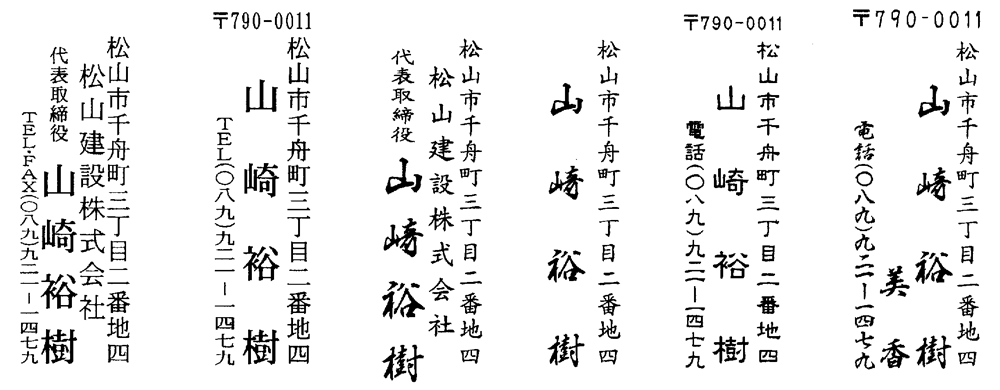 松山市千舟町三丁目二番地四
松山建設株式会社
代表取締役 山崎裕樹
TEL・FAX(〇八九)九二一-一四七九
〒790-0011
松山市千舟町三丁目二番地四
山崎裕樹
TEL(〇八九)九二一-一四七九
松山市千舟町三丁目二番地四
松山建設株式会社
代表取締役 山崎裕樹
松山市千舟町三丁目二番地四
山崎裕樹
〒790-0011
松山市千舟町三丁目二番地四
山崎裕樹
電話(〇八九)九二一-一四七九
〒790-0011
松山市千舟町三丁目二番地四
山崎裕樹
美香
電話(〇八九)九二一-一四七九